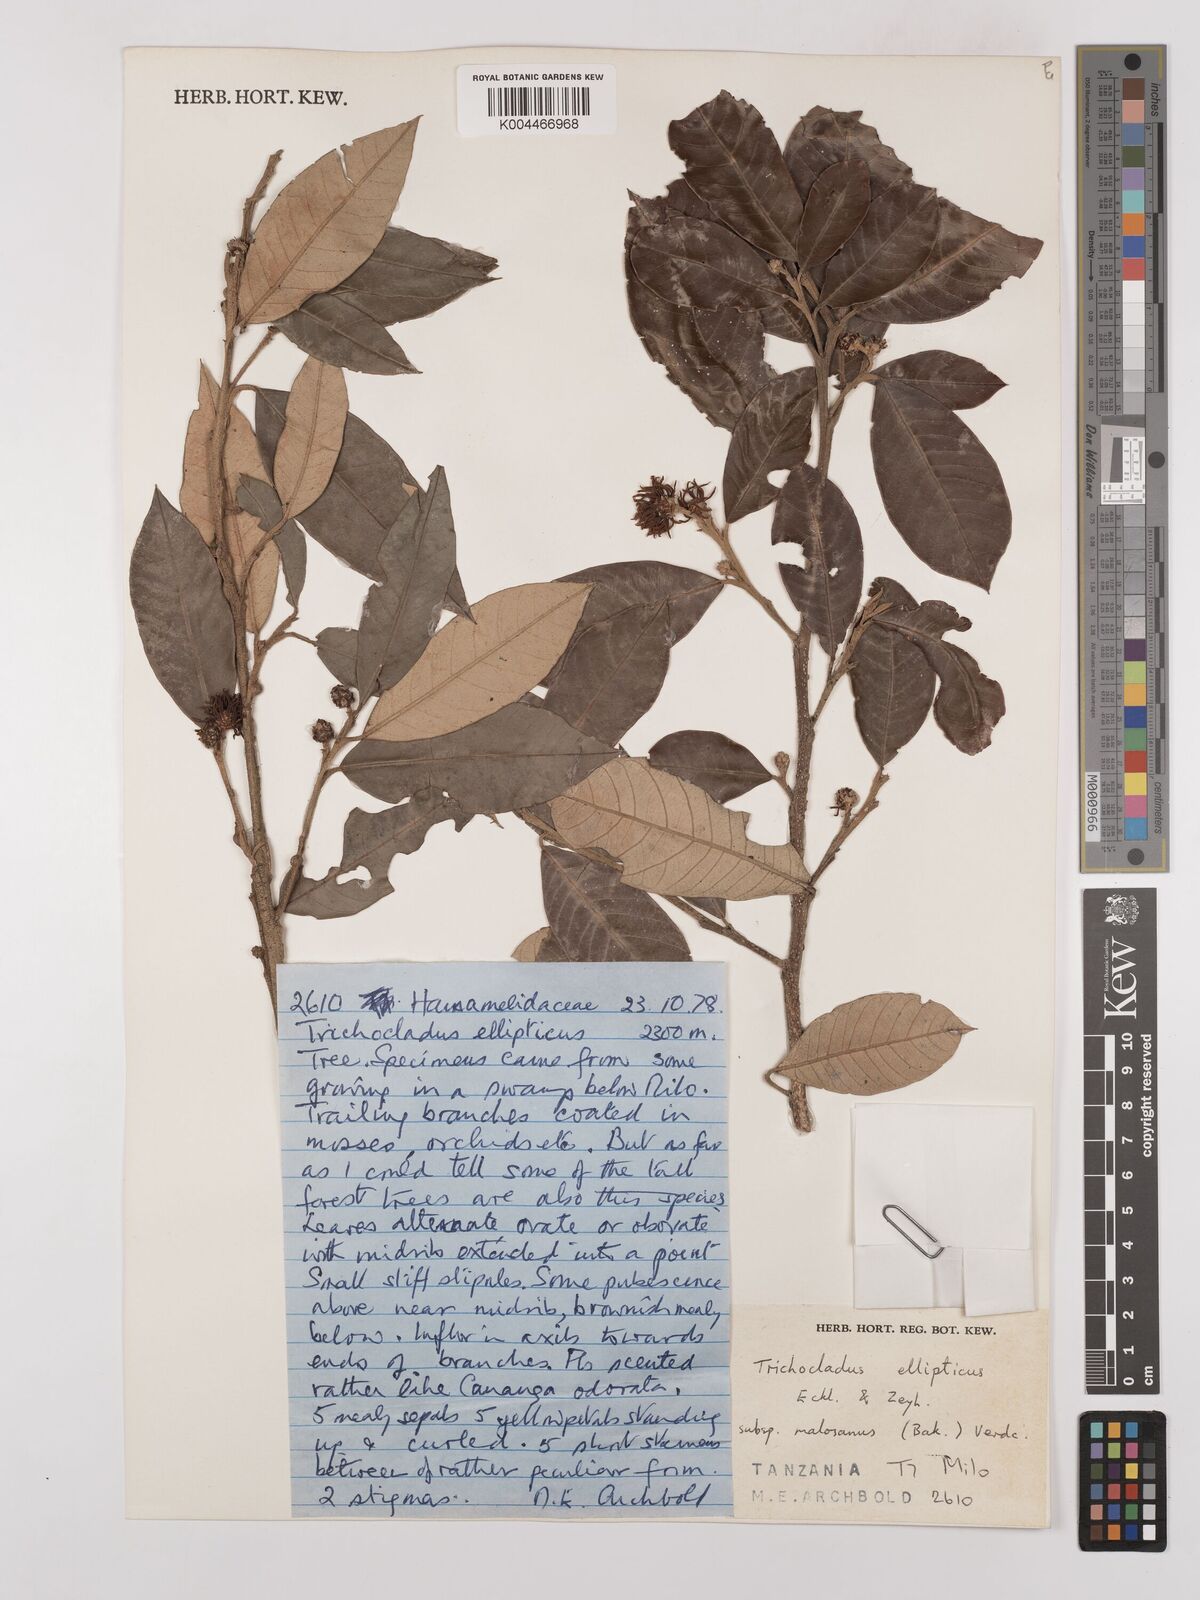 HERB. HORT. KEW.
ROYAL BOTANIC GARDENS KEW
K004466968
2610 Hamamelidaceae 23.10.78.
Trichocladus ellipticus 2300 m.
Tree. Specimens came from some
growing in a swamp below Milo.
Trailing branches coated in
mosses, orchids etc. But as far
as I could tell some of the tall
forest trees are also this species
Leaves alternate ovate or obovate
with midrib extended into a point
Small stiff stipules. Some pubescence
above near midrib, brownish mealy
below. Inflor in axils towards
ends of branches. Fls scented
rather like Cananga odorata.
5 mealy sepals 5 yellow petals standing
up & curled. 5 short stamens
between of rather peculiar form.
2 stigmas. M.E. Archbold
HERB. HORT. REG. BOT. KEW.
Trichocladus ellipticus
Eckl. & Zeyh.
subsp. malosanus (Bak.) Verdc.
TANZANIA T7 Milo
M.E. ARCHBOLD 2610
inches
centimeters
Density
Don Williams
M000966
Royal Botanic Gardens
Kew
copyright reserved
0 1 2 3 4 5 6 7 8 9 10
cm